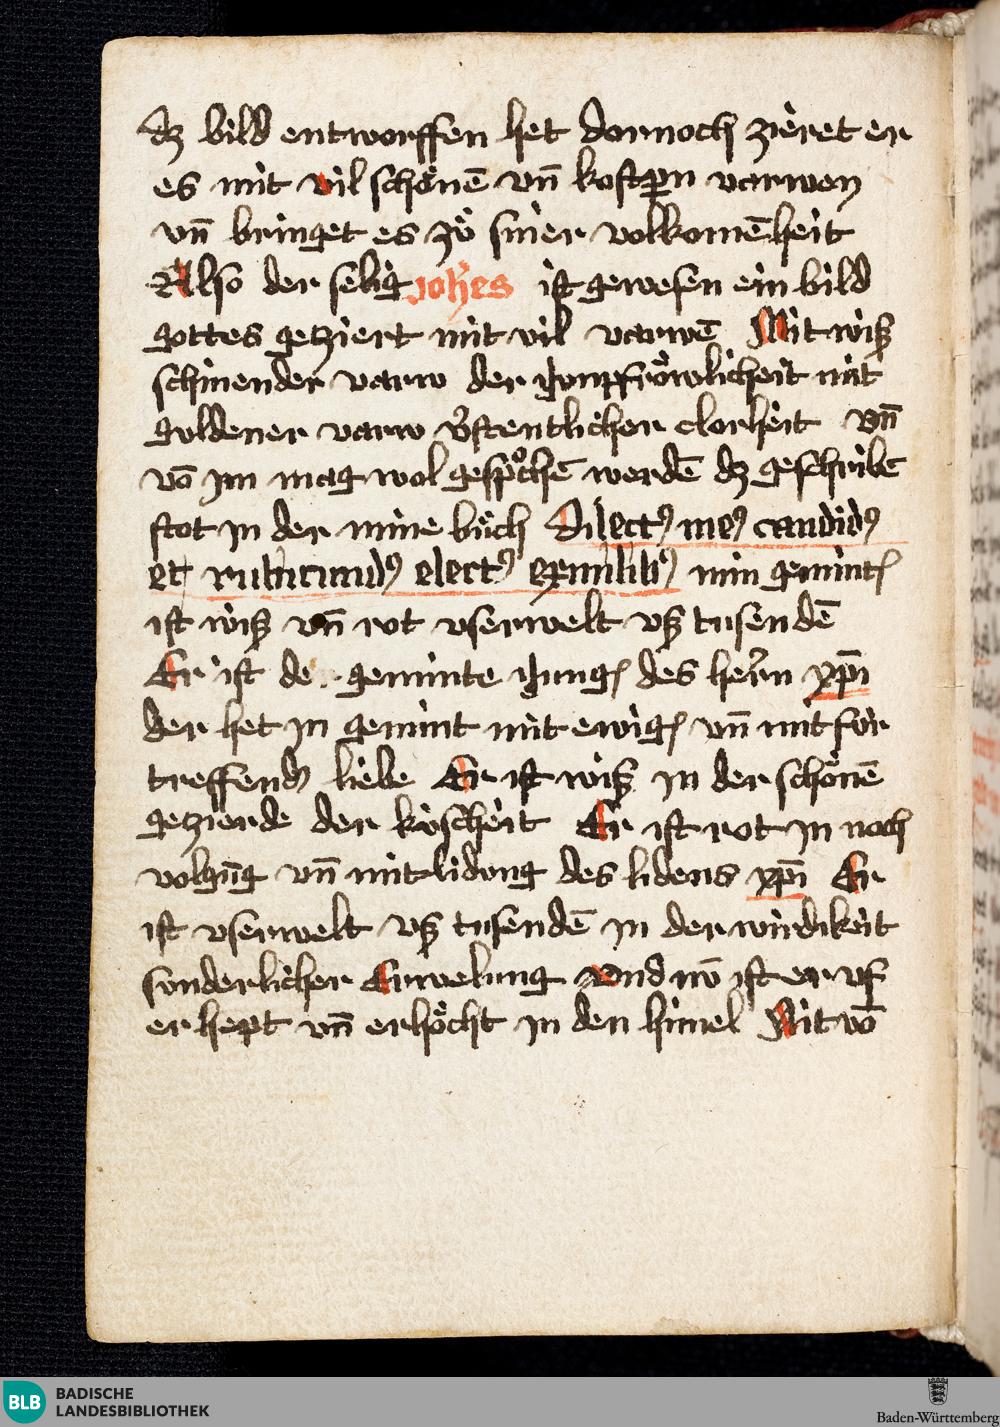 dz bild entworffen het dornoch zieret er
es mit vil schoͤnē vn̄ kostpern varwen
vn̄ bringet es zuͦ siner volkomēheit
Also der selig joh̄es ist gewesen ein bild
gottes geziert mit vil varwē Mit wiß
schinender varw der junpfroͤwlicheit mit
guldener varw v̓stentlicher clorheit vn̄
vō jm mag wol gesprochē werdē dz geschribē
stot in der mine buͦch Dilectꝰ meꝰ candidꝰ
et rubicundꝰ electꝰ exmilibꝰ min gemintʼ
ist wiß vn̄ rot vserwelt vß tusendē
Er ist der geminte jungʼ des hern̄ xp̄i
der het in gemint mit ewigʼ vn̄ mit für
treffendʼ liebe Er ist wiß in der schoͤnē
gezierde der küscheit Er ist rot in noch
volgūg vn̄ mitlidong des lidens xp̄i Er
ist vserwelt vß tusendē in der wirdikeit
sonderlicher Erwelung vnd nō ist er vf
erhept vn̄ erhoͤcht in den himel Mit vō
BLB BADISCHE
LANDESBIBLIOTHEK
Baden-Württemberg